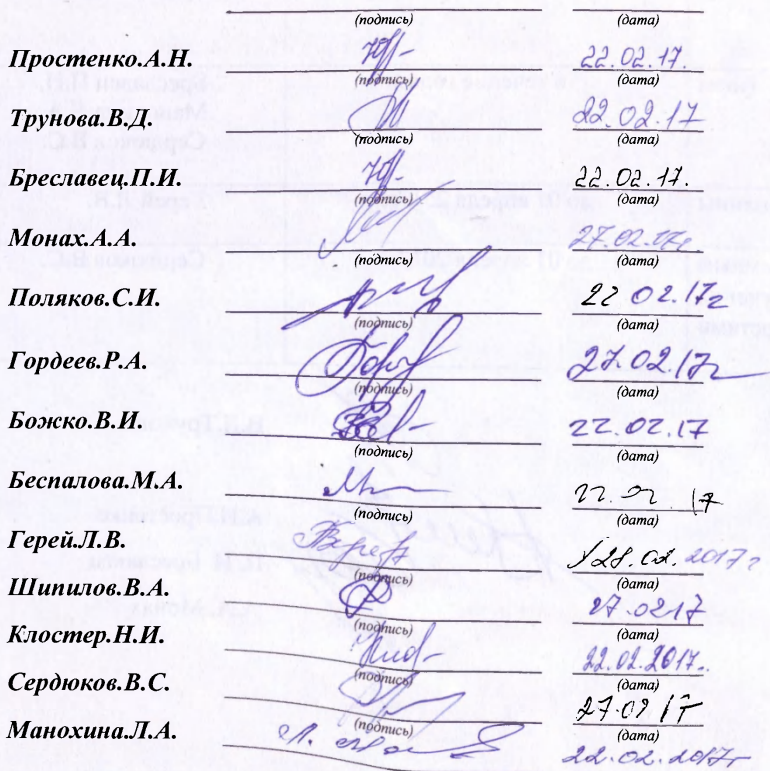 (подпись) (дата)
Простенко.А.Н. 22.02.17.
(подпись) (дата)
Трунова.В.Д. 22.02.17
(подпись) (дата)
Бреславец.П.И. 22.02.17.
(подпись) (дата)
Монах.А.А. 27.02.17г
(подпись) (дата)
Поляков.С.И. 22 02.17г
(подпись) (дата)
Гордеев.Р.А. 27.02.17г
(подпись) (дата)
Божко.В.И. 22.02.17
(подпись) (дата)
Беспалова.М.А. 22.02.17
(подпись) (дата)
Герей.Л.В. 2017г
(подпись) (дата)
Шипилов.В.А. 27.0217
(подпись) (дата)
Клостер.Н.И. 22.02.2017.
(подпись) (дата)
Сердюков.В.С.
(подпись) (дата)
Манохина.Л.А. 22.02.2017г